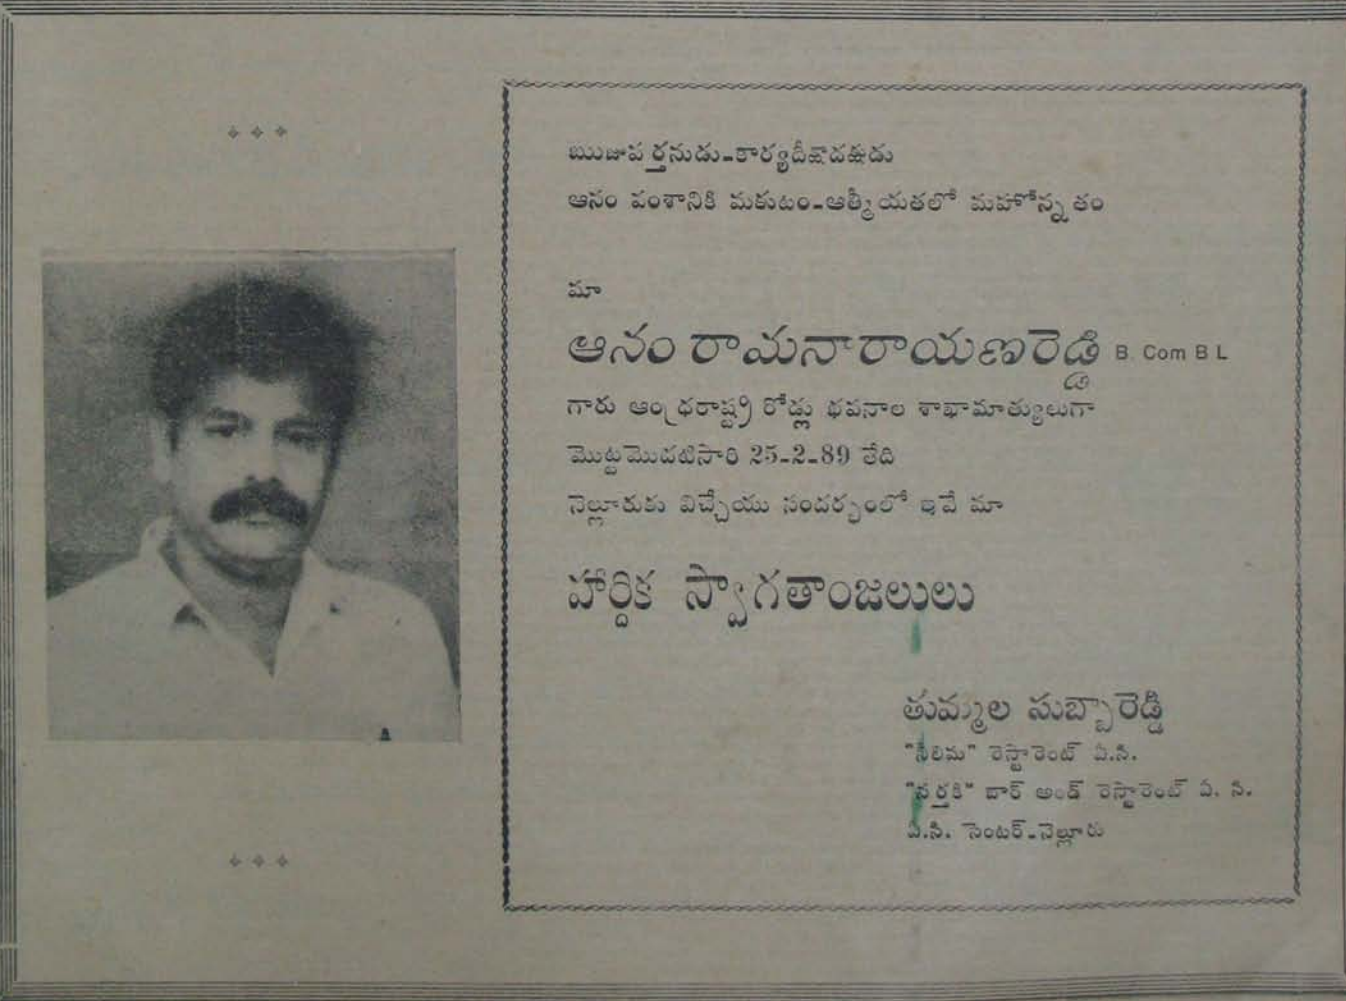 ఋజువర్తనుడు-కార్యదీక్షాదక్షుడు
ఆనం వంశానికి మకుటం-ఆత్మీయతలో మహోన్నతం
మా
ఆనం రామనారాయణరెడ్డి B. Com B L
గారు ఆంధ్రరాష్ట్ర రోడ్లు భవనాల శాఖామాత్యులుగా
మొట్టమొదటిసారి 25-2-89 తేది
నెల్లూరుకు విచ్చేయు సందర్భంలో ఇవే మా
హార్దిక స్వాగతాంజలులు
తుమ్మల సుబ్బారెడ్డి
"నీలిమ" రెస్టారెంట్ ఏ.సి.
"నర్తకి" బార్ అండ్ రెస్టారెంట్ ఏ. సి.
వి.సి. సెంటర్-నెల్లూరు